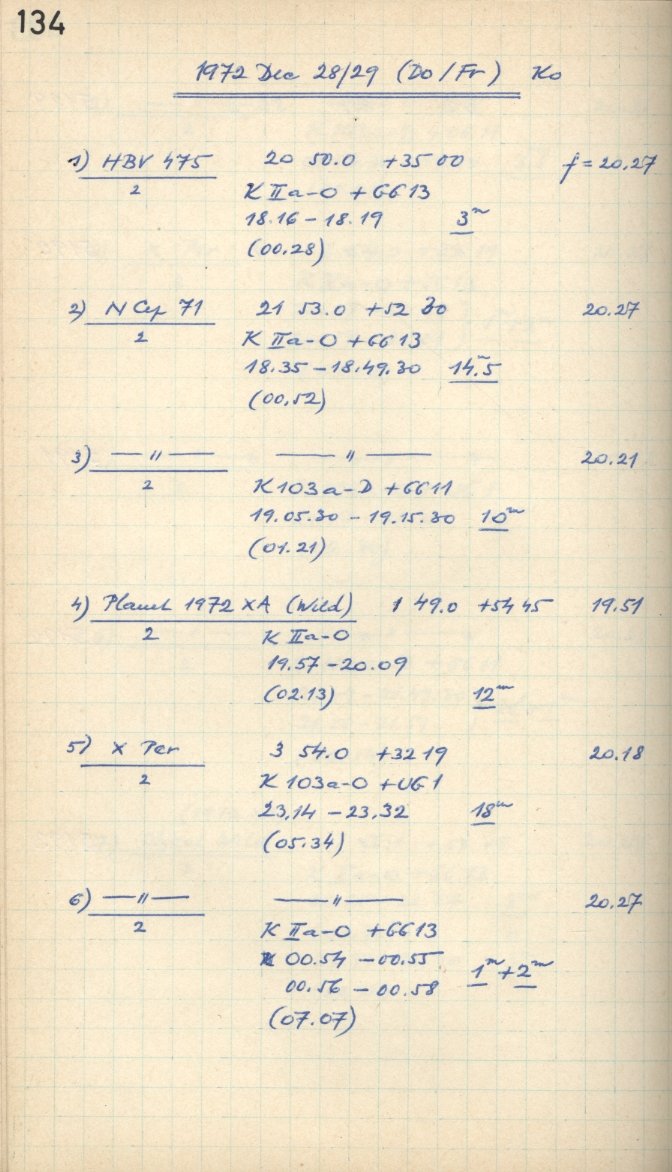 134
1972 Dec 28/29 (Do/Fr) Ko
1) HBV 475 20 50.0 +35 00 f = 20.27
2 K IIa-O + GG13
18.16 – 18.19 3m
(00.28)
2) N Cep 71 21 53.0 +52 30 20.27
2 K IIa-O + GG13
18.35 – 18.49.30 14m.5
(00.52)
3) — " — — " — 20.21
2 K 103a-D + GG11
19.05.30 – 19.15.30 10m
(01.21)
4) Planet 1972 XA (Wild) 1 49.0 +54 45 19.51
2 K IIa-O
19.57 – 20.09
(02.13) 12m
5) X Per 3 54.0 +32 19 20.18
2 K 103a-O + UG1
23.14 – 23.32 18m
(05.34)
6) — " — — " — 20.27
2 K IIa-O + GG13
00.54 – 00.55 1m + 2m
00.56 – 00.58
(07.07)